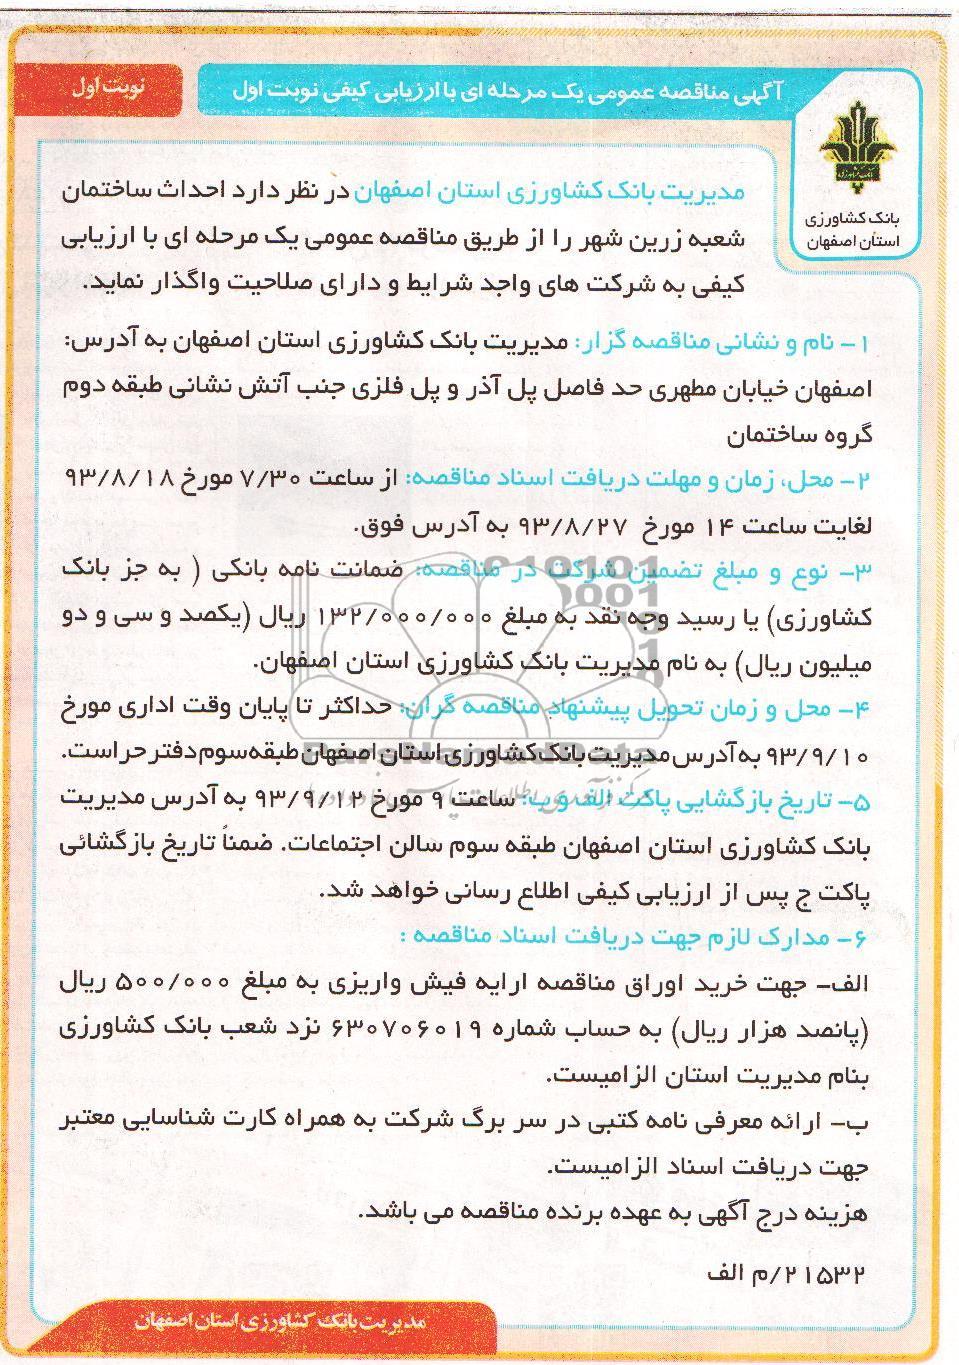 آگهی مناقصه عمومی یک مرحله ای با ارزیابی کیفی نوبت اول
نوبت اول
بانک کشاورزی
استان اصفهان
مدیریت بانک کشاورزی استان اصفهان در نظر دارد احداث ساختمان
شعبه زرین شهر را از طریق مناقصه عمومی یک مرحله ای با ارزیابی
کیفی به شرکت های واجد شرایط و دارای صلاحیت واگذار نماید.
۱- نام و نشانی مناقصه گزار: مدیریت بانک کشاورزی استان اصفهان به آدرس:
اصفهان خیابان مطهری حد فاصل پل آذر و پل فلزی جنب آتش نشانی طبقه دوم
گروه ساختمان
۲- محل، زمان و مهلت دریافت اسناد مناقصه: از ساعت ۷/۳۰ مورخ ۹۳/۸/۱۸
لغایت ساعت ۱۴ مورخ ۹۳/۸/۲۷ به آدرس فوق.
۳- نوع و مبلغ تضمین شرکت در مناقصه: ضمانت نامه بانکی ( به جز بانک
کشاورزی) یا رسید وجه نقد به مبلغ ۱۳۲/۰۰۰/۰۰۰ ریال (یکصد و سی و دو
میلیون ریال) به نام مدیریت بانک کشاورزی استان اصفهان.
۴- محل و زمان تحویل پیشنهاد مناقصه گران: حداکثر تا پایان وقت اداری مورخ
۹۳/۹/۱۰ به آدرس مدیریت بانک کشاورزی استان اصفهان طبقه سوم دفتر حراست.
۵- تاریخ بازگشایی پاکت الف و ب: ساعت ۹ مورخ ۹۳/۹/۱۲ به آدرس مدیریت
بانک کشاورزی استان اصفهان طبقه سوم سالن اجتماعات. ضمناً تاریخ بازگشائی
پاکت ج پس از ارزیابی کیفی اطلاع رسانی خواهد شد.
۶- مدارک لازم جهت دریافت اسناد مناقصه :
الف- جهت خرید اوراق مناقصه ارایه فیش واریزی به مبلغ ۵۰۰/۰۰۰ ریال
(پانصد هزار ریال) به حساب شماره ۶۳۰۷۰۶۰۱۹ نزد شعب بانک کشاورزی
بنام مدیریت استان الزامیست.
ب- ارائه معرفی نامه کتبی در سر برگ شرکت به همراه کارت شناسایی معتبر
جهت دریافت اسناد الزامیست.
هزینه درج آگهی به عهده برنده مناقصه می باشد.
۲۱۵۳۲/م الف
مدیریت بانک کشاورزی استان اصفهان